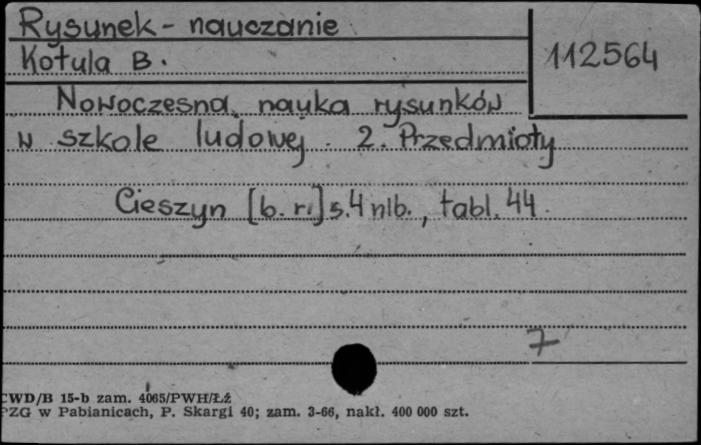 Rysunek - nauczanie
Kotula B.
112564
Nowoczesna nauka rysunków
w szkole ludowej. 2. Przedmioty
Cieszyn [b. r.] s. 4 nlb., tabl. 44.
7
CWD/B 15-b zam. 4065/PWH/Łź
PZG w Pabianicach, P. Skargi 40; zam. 3-66, nakł. 400 000 szt.